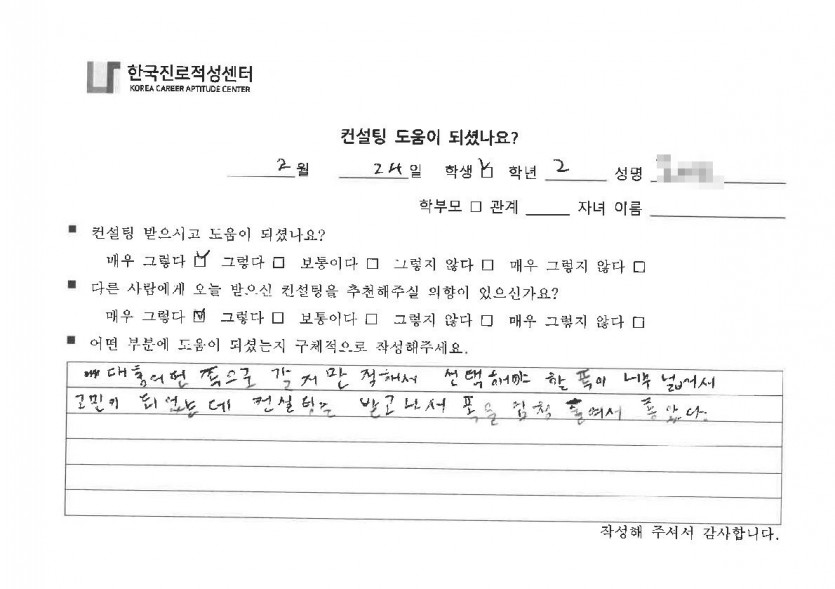 한국진로적성센터
KOREA CAREER APTITUDE CENTER
컨설팅 도움이 되셨나요?
2월 24일 학생 ☑ 학년 2 성명
학부모 □ 관계 자녀 이름
■ 컨설팅 받으시고 도움이 되셨나요?
매우 그렇다 ☑ 그렇다 □ 보통이다 □ 그렇지 않다 □ 매우 그렇지 않다 □
■ 다른 사람에게 오늘 받으신 컨설팅을 추천해주실 의향이 있으신가요?
매우 그렇다 ☑ 그렇다 □ 보통이다 □ 그렇지 않다 □ 매우 그렇지 않다 □
■ 어떤 부분에 도움이 되셨는지 구체적으로 작성해주세요.
쪽으로 갈지만 정해서 선택해야 할 폭이 너무 넓어서
고민이 되었는데 컨설팅을 받고나서 폭을 엄청 줄여서 좋았다.
작성해 주셔서 감사합니다.